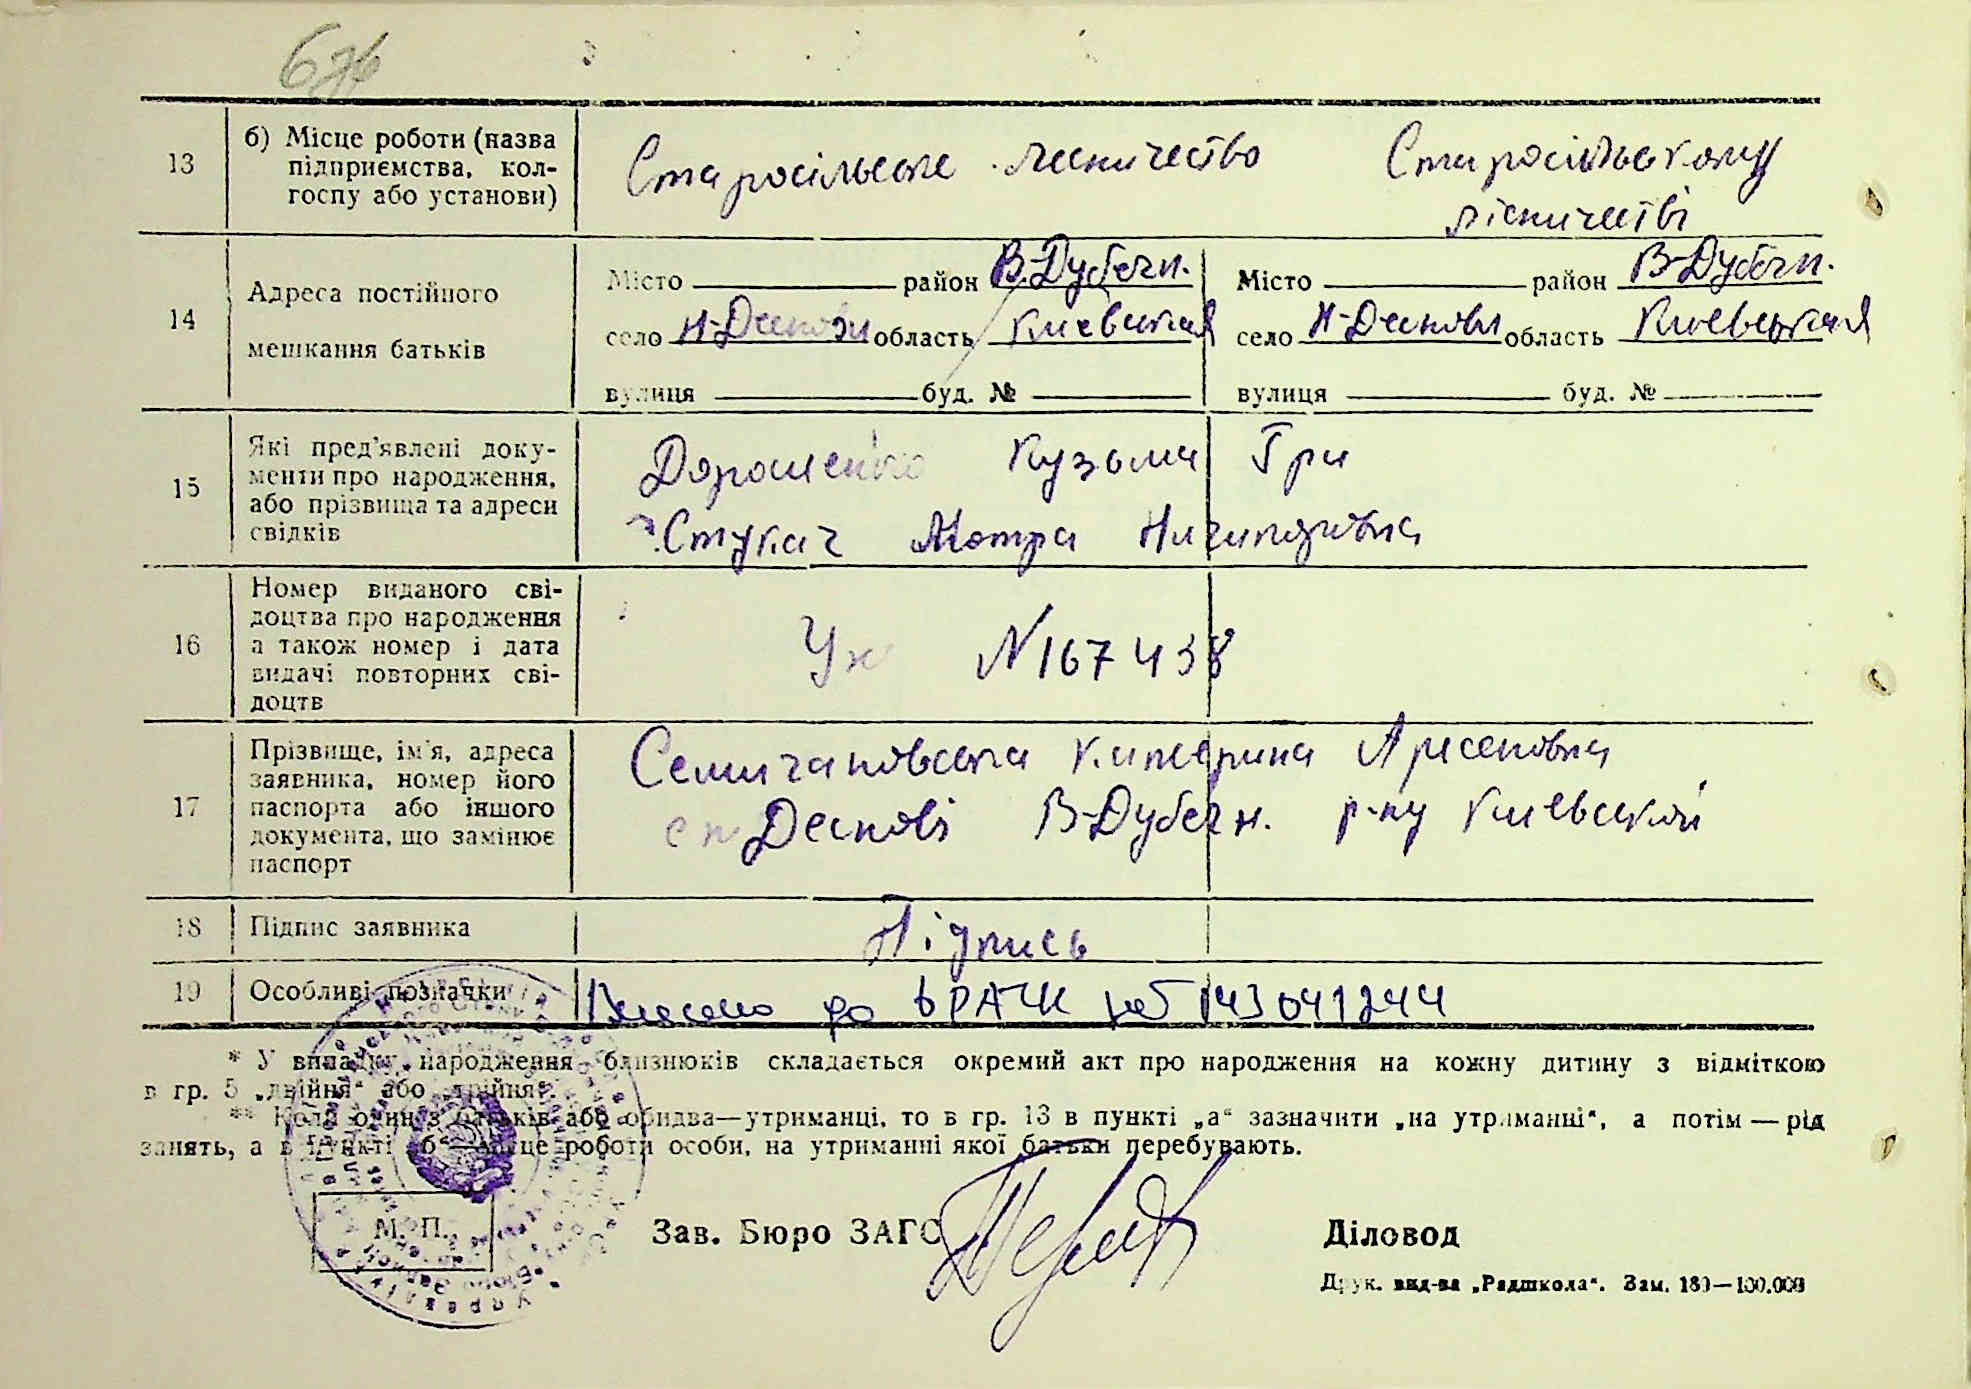 13
б) Місце роботи (назва
підприємства, кол-
госпу або установи)
Старосільське лесничество
Старосільському
лісничестві
14
Адреса постійного
мешкання батьків
Місто район В.Дубечн.
село Н-Деснови область Киевская
вулиця буд. №
Місто район В-Дубечн.
село Н-Десновы область Киевская
вулиця буд. №
15
Які пред'явлені доку-
менти про народження,
або прізвища та адреси
свідків
Дорошенко Кузьма Гри
Стукач Мотра Ничипорівна
16
Номер виданого сві-
доцтва про народження
а також номер і дата
видачі повторних сві-
доцтв
N 167438
17
Прізвище, ім'я, адреса
заявника, номер його
паспорта або іншого
документа, що замінює
паспорт
Семичановська Катерина Арсеновна
с н Деснові В-Дубечн. р-ну Киевській
18
Підпис заявника
Підпись
19
Особливі позначки
Внесено до ДРАЦС 00143041244
* У випадку народження близнюків складається окремий акт про народження на кожну дитину з відміткою
в гр. 5 „двійня“ або „трійня“.
** Коли один з батьків або обидва—утриманці, то в гр. 13 в пункті „а“ зазначити „на утриманні“, а потім — рід
занять, а в пункті „б“ — місце роботи особи, на утриманні якої батьки перебувають.
М. П.
Зав. Бюро ЗАГС
Діловод
Друк. вид-ва „Радшкола“. Зам. 180—100.000